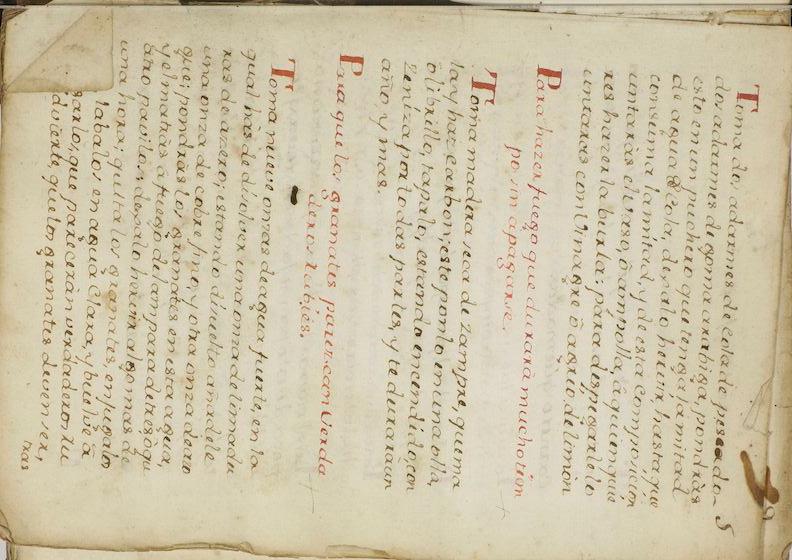 9
Toma dos adarmes de cola de pescado 5
dos adarmes de goma arabiga, pondràs
esto en un puchero que tenga la mitad
de agua sola, dexalo hervir, hasta que
consuma la mitad, y de esta composicion
untaràs el vaso, ò ampolla, à quien quie
res hazer la burla; para despegarlo lo
untaràs con vinagre ò agrio de limon
Para hazer fuego que durarà mucho tiem
po, sin apagarse.
Toma madera seca de Zampre, quema
la y haz carbon, este ponlo en una olla,
ò librillo, tapalo, estando encendido, con
zeniza por todas partes, y te durarà un
año y mas.
Para que los granates parezcan verda
deros rubies.
Toma nueve onzas de agua fuerte, en la
qual hàs de disolver una onza de limadu
ras de azero; estando disuelto añadele
una onza de cobre fino, y otra onza de ar
que; pondràs los granates en esta agua,
y el matràs a fuego de lampara de tres ò qu
atro pavilos, dexalo hervir algo mas de
una hora, quita los granates, enjugalos
labalos en agua clara, y buelve à
garlos, que pareceràn verdaderos ru
advierte, que los granates deven ser,
mas